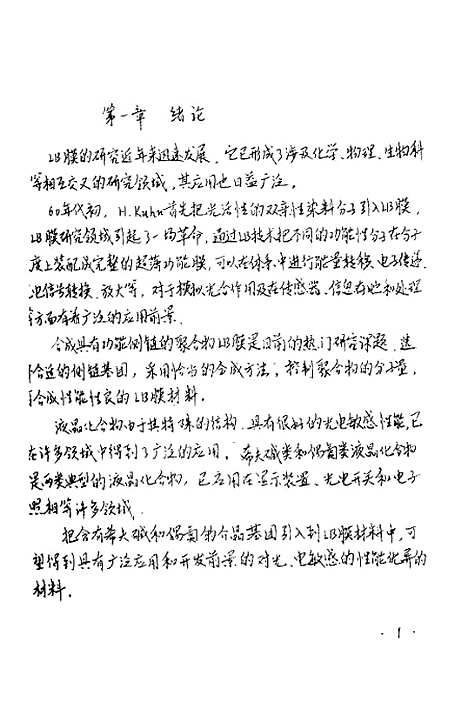 第一章 绪论
LB膜的研究近年来迅速发展，它已形成了涉及化学、物理、生物科
等相互交叉的研究领域，其应用也日益广泛。
60年代初，H.Kuhn首先把光活性的双亲性染料分子引入LB膜，
LB膜研究领域引起了一场革命，通过LB技术把不同的功能性分子在分子
度上装配成完整的超薄功能膜，可以在体系中进行能量转移、电子传递、
光信号转换、放大等，对于模拟光合作用及在传感器、信息存贮和处理
方面有着广泛的应用前景。
合成具有功能侧链的聚合物LB膜是目前的热门研究课题，选
合适的侧链基团，采用恰当的合成方法，控制聚合物的分子量，
合成性能性良的LB膜材料。
液晶化合物由于其特殊的结构，具有很好的光电敏感性能，已
在许多领域中得到了广泛的应用。希夫碱类和偶氮类液晶化合物
是两类典型的液晶化合物，已应用在显示装置、光电开关和电子
照相等许多领域。
把含有希夫碱和偶氮的介晶基团引入到LB膜材料中，可
望得到具有广泛应用和开发前景的对光、电敏感的性能优异的
材料。
·1·